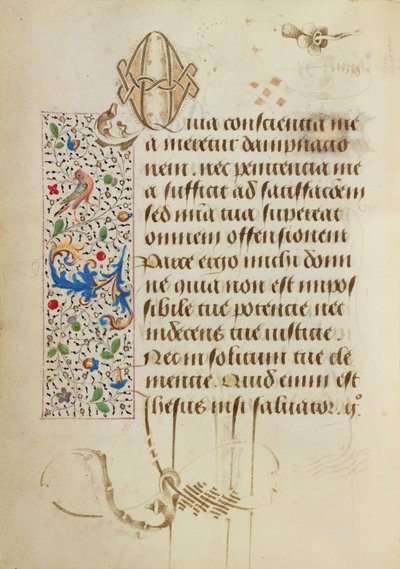 Quia consciencia me
a meretur dampnacio
nem. nec penitencia me
a sufficit ad satisfaccōem
sed mīa tua superat
omnem offensionem
Parce ergo michi domi
ne quia non est impos
sibile tue potencie nec
indecens tue iusticie
Nec insolitum tue cle
mencie. Quid enim est
ihesus nisi saluator. q°